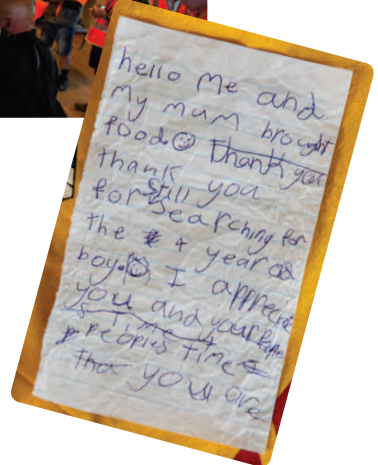 hello me and
my mum brought
food☺ thank you
thank you
for still searching for
the 4 year old
boy.☺ I apprecia
you and your people
s time
peoples time
tha you are